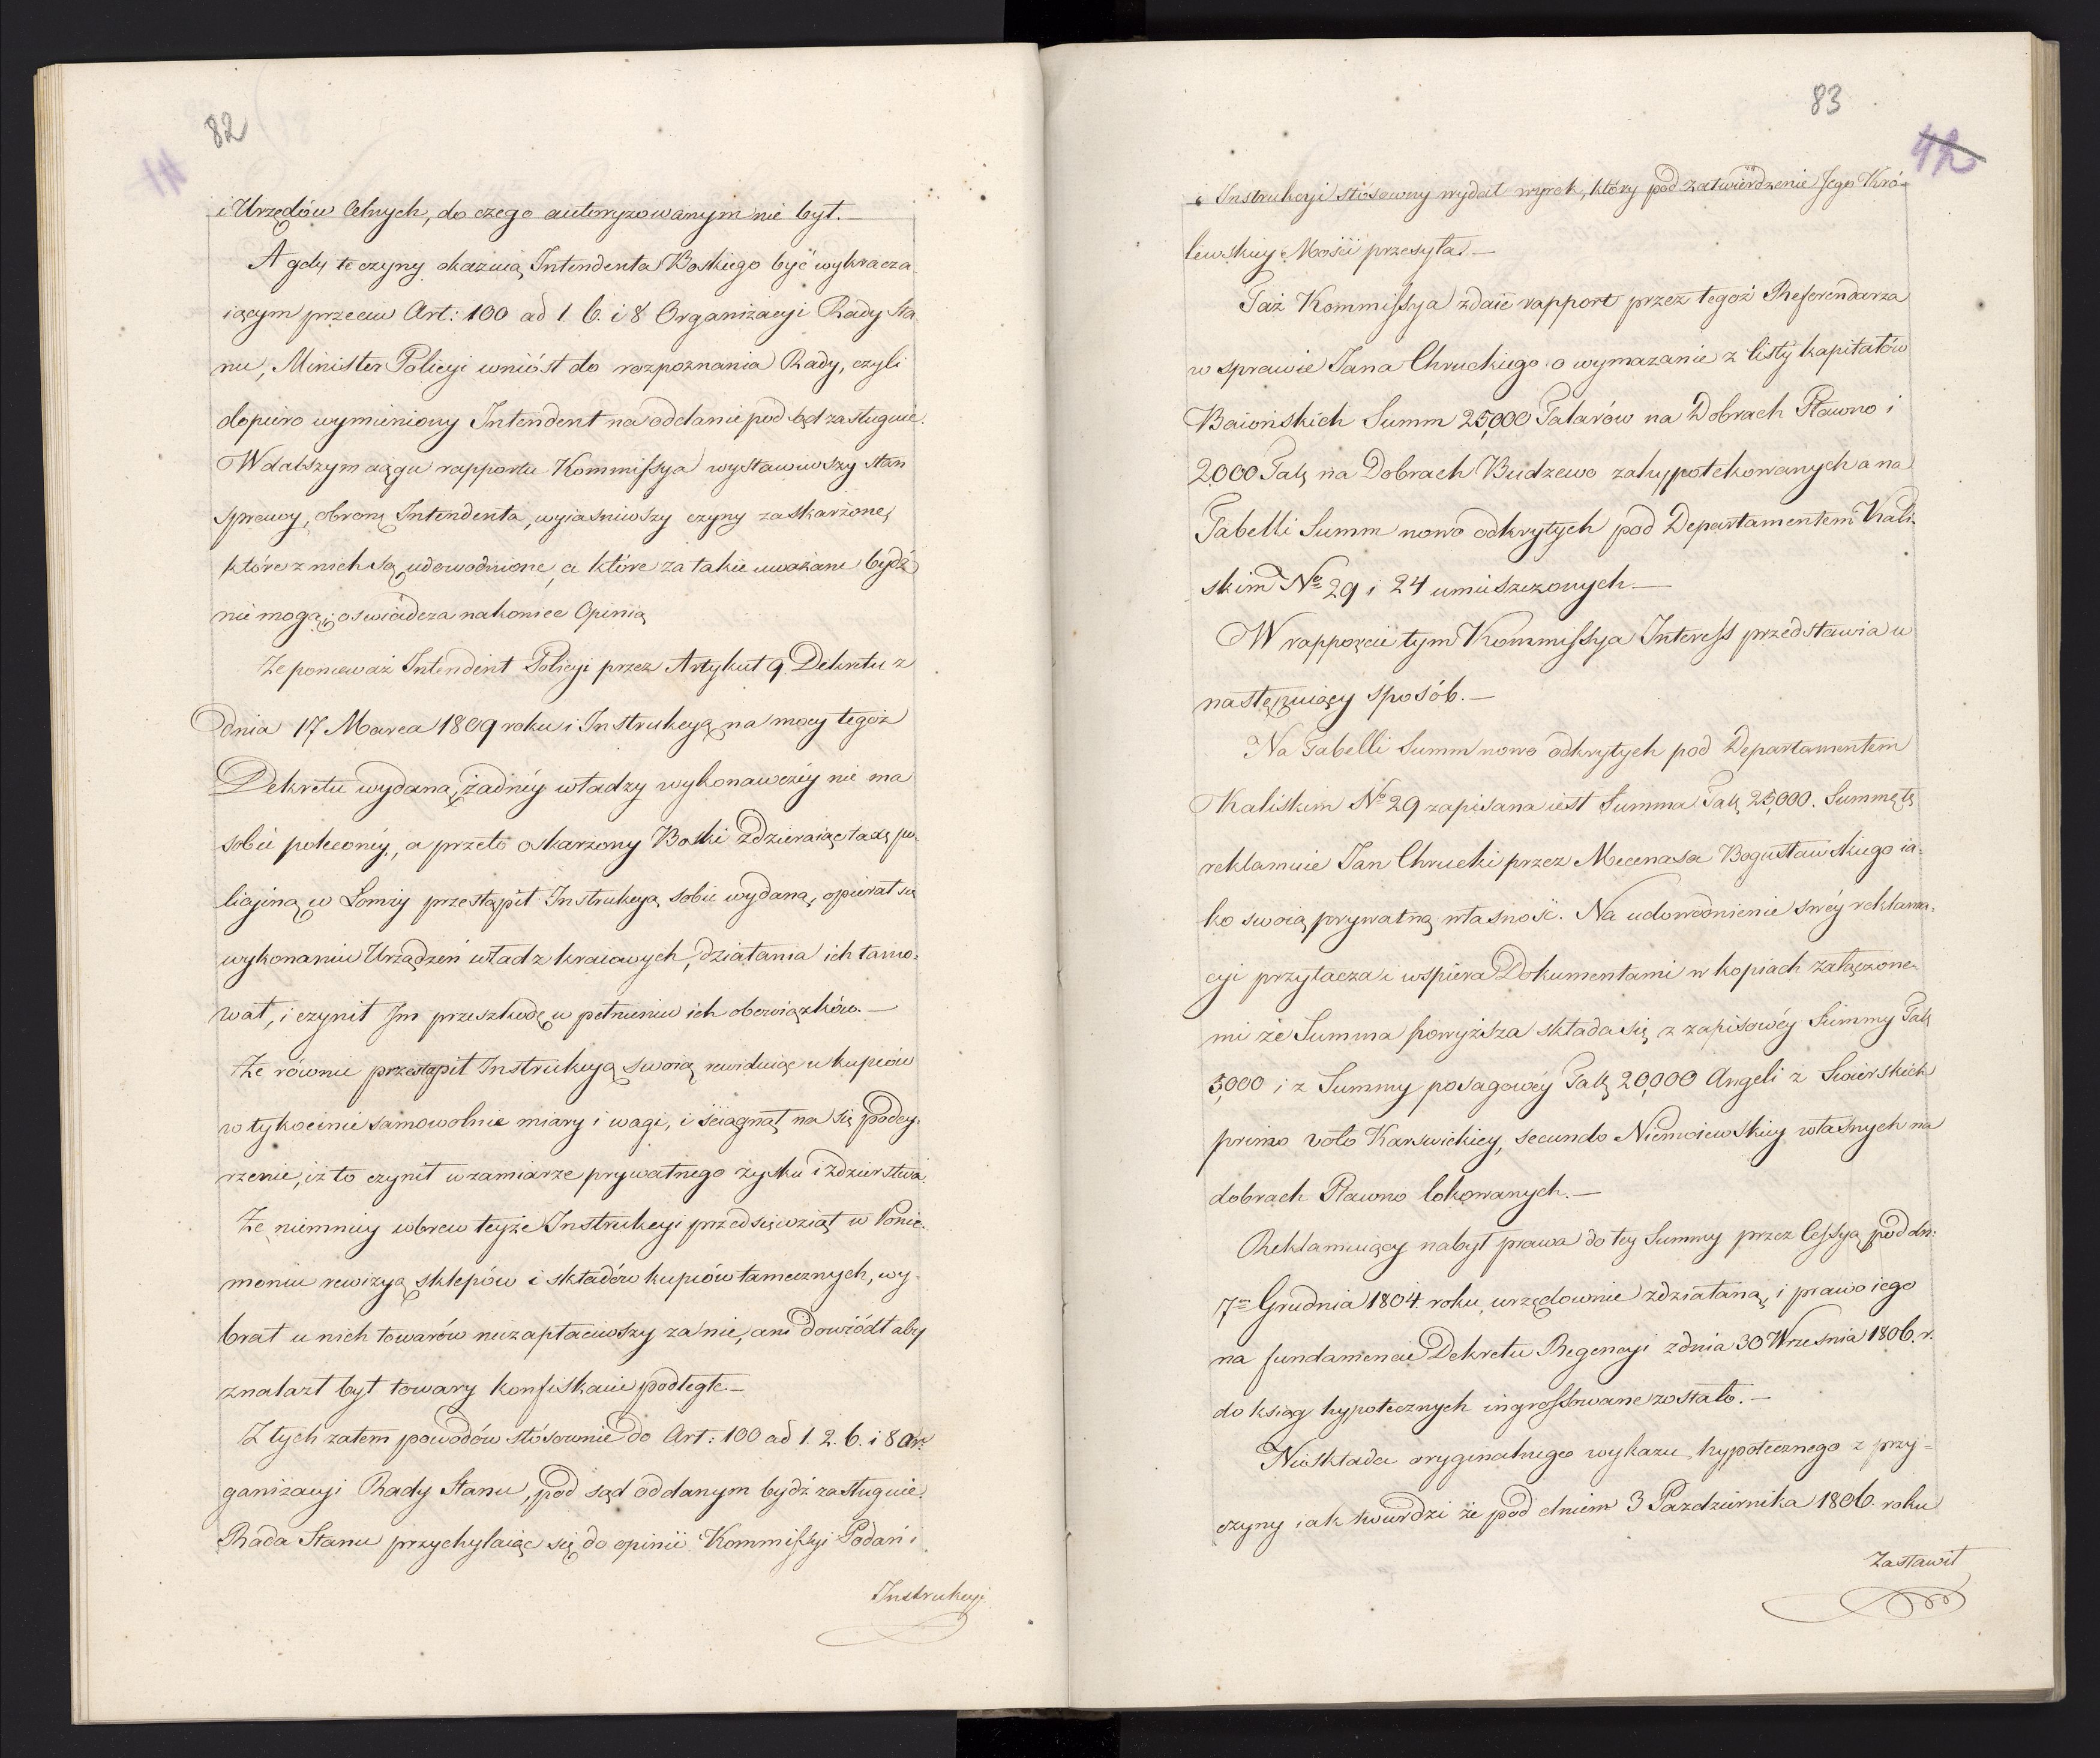 82
i Urzędów Celnych, do czego autoryzowanym nie był.—
A gdy te czyny okazuią Intendenta Boskiego być wykracza-
iącym przeciw Art: 100 ad 1. 6. i 8 Organizacyi Rady Sta-
nu, Minister Policyi wniósł do rozpoznania Rady, czyli
dopiero wymieniony Intendent na oddanie pod sąd zasługuie.
W dalszym ciągu rapportu Kommissya wystawiwszy stan
sprawy, obronę Intendenta, wyiaśniwszy czyny zaskarżone,
które z nich są udowodnione, a które za takie uważane bydź
nie mogą; oświadcza nakoniec Opinią
Że ponieważ Intendent Policyi przez Artykuł 9 Dekretu z
dnia 17 Marca 1809 roku i Instrukcyą na mocy tegoż
Dekretu wydaną, żadnéy władzy wykonawczéy nie ma
sobie poleconéy, a przeto oskarżony Boski zdzieraiąc taxę po-
licyiną w Łomży przestąpił Instrukcyą sobie wydaną, opierał się
wykonaniu Urządzeń władz kraiowych, działania ich tamo-
wał, i czynił Im przeszkodę w pełnieniu ich obowiązków.—
Że równie przestąpił Instrukcyą swoią rewiduiąc u kupców
w tykocinie samowolnie miary i wagi, i ściągnął na się podey-
rzenie, iż to czynił w zamiarze prywatnego zysku i zdzierstwa.
Że niemniey wbrew teyże Instrukcyi przedsięwziął w Ponie-
moniu rewizyą sklepów i składów kupców tamecznych, wy-
brał u nich towarów niezapłaciwszy za nie, ani dowiódł aby
znalazł był towary konfiskacie podległe.—
Z tych zatem powodów stósownie do Art: 100 ad 1. 2. 6. i 8 Or-
ganizacyi Rady Stanu, pod sąd oddanym bydź zasługuie.
Rada Stanu przychylaiąc się do opinii Kommissyi Podań i
Instrukcyi
83
42
i Instrukcyi stósowny wydał wyrok, który pod zatwierdzenie Jego Kró-
lewskiey Mości przesyła.—
Taż Kommissya zdaie rapport przez tegoż Referendarza
w sprawie Jana Chruckiego o wymazanie z listy kapitałów
Baiońskich Summ 25,000 Talarów na Dobrach Pławno i
2000 Tal. na Dobrach Budzewo zahypotekowanych a na
Tabelli Summ nowo odkrytych pod Departamentem Kali-
skim No 29 i 24 umieszczonych.—
W rapporcie tym Kommissya Interess przedstawia w
następuiący sposób.—
Na Tabelli Summ nowo odkrytych pod Departamentem
Kaliskim No 29 zapisana iest Summa Tal. 25,000. Summę tę
reklamuie Jan Chrucki przez Mecenasa Bogusławskiego ia-
ko swoią prywatną własność. Na udowodnienie swéy reklama-
cyi przytacza i wspiera Dokumentami w kopiach załączone-
mi że Summa powyższa składa się z zapisowéy Summy Tal.
5,000 i z Summy posagowéy Tal. 20,000 Angeli z Swierskich
primo voto Karwickiey, secundo Niemoiewskiey własnych na
dobrach Pławno lokowanych.—
Reklamuiący nabył prawa do tey Summy przez Cessyą pod dn:
7m Grudnia 1804. roku urzędownie zdziałaną, i prawo iego
na fundamencie Dekretu Regencyi z dnia 30 Września 1806. r.
do ksiąg hypotecznych ingrossowane zostało.—
Nieskłada oryginalnego wykazu hypotecznego z przy-
czyny iak twierdzi że pod dniem 3 Pazdziernika 1806. roku
Zastawił